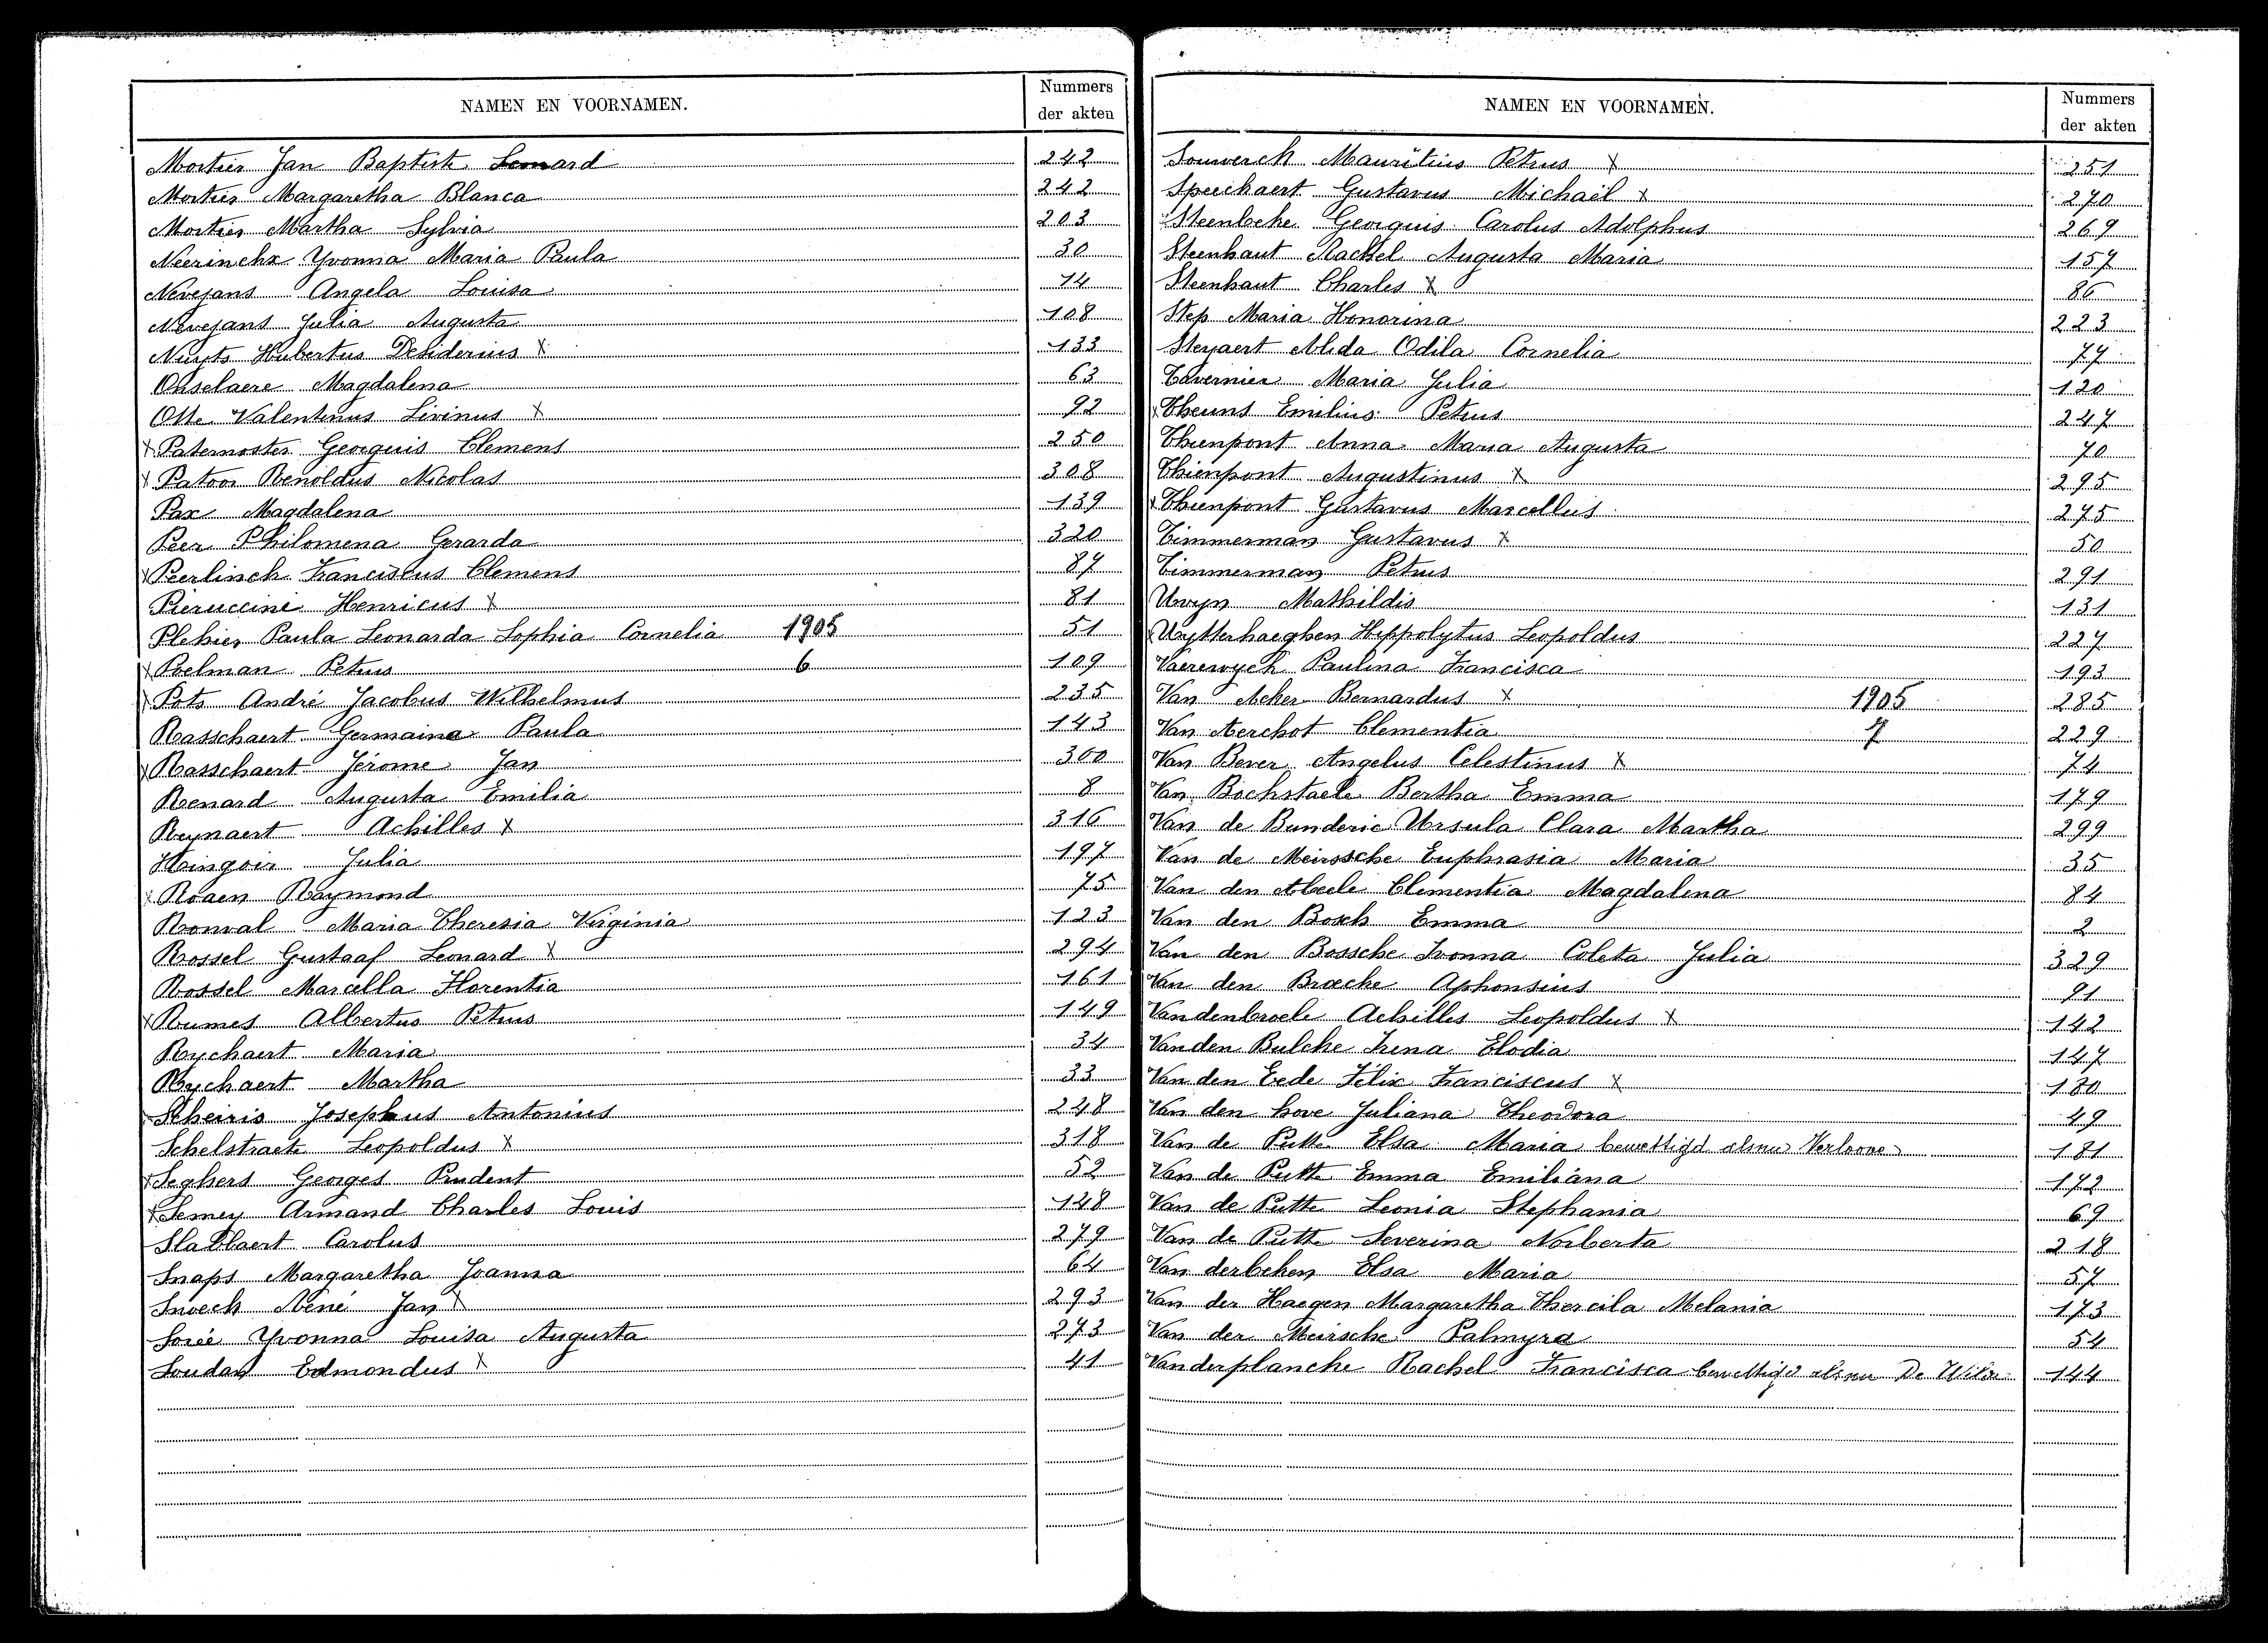 NAMEN EN VOORNAMEN. Nummers der akten
Mortier Jan Baptist Leonard 242
Mortier Margaretha Blanca 242
Mortier Martha Sylvia 203
Neerinckx Yvonna Maria Paula 30
Nevejans Angela Louisa 14
Nevejans Julia Augusta 108
Nuyts Hubertus Desiderius X 133
Onselaere Magdalena 63
Otte Valentinus Livinus X 92
X Paternoster Georguis Clemens 250
X Patoor Renoldus Nicolas 308
Pax Magdalena 139
Peer Philomena Gerarda 320
X Peerlinck Franciscus Clemens 87
Pieruccini Henricus X 81
Plehier Paula Leonarda Sophia Cornelia 1905 51
X Poelman Petrus 6 109
X Pots André Jacobus Wilhelmus 235
Rasschaert Germaine Paula 143
X Rasschaert Jérome Jan 300
Renard Augusta Emilia 8
Reynaert Achilles X 316
Ringoir Julia 197
X Roaen Raymond 75
Ronval Maria Theresia Virginia 123
Rossel Gustaaf Leonard X 294
Rossel Marcella Florentia 161
X Rumes Albertus Petrus 149
Ryckaert Maria 34
Ryckaert Martha 33
Scheiris Josephus Antonius 248
Schelstraete Leopoldus X 318
X Seghers Georges Prudent 52
X Semey Armand Charles Louis 148
Slabbaert Carolus 279
Snaps Margaretha Joanna 64
Snoeck René Jan X 293
Sorée Yvonna Louisa Augusta 273
Soudan Edmondus X 41
NAMEN EN VOORNAMEN. Nummers der akten
Souverck Mauritius Petrus X 251
Speeckaert Gustavus Michaël X 270
Steenbeke Georguis Carolus Adolphus 269
Steenhaut Rachel Augusta Maria 157
Steenhaut Charles X 86
Step Maria Honorina 223
Steyaert Alida Odila Cornelia 77
Tavernier Maria Julia 120
X Theuns Emilius Petrus 247
Thienpont Anna Maria Augusta 70
Thienpont Augustinus X 295
X Thienpont Gustavus Marcellus 275
Timmerman Gustavus X 50
Timmerman Petrus 291
Uvyn Mathildis 131
X Uytterhaeghen Hippolytus Leopoldus 227
Vaerewyck Paulina Francisca 193
Van Acker Bernardus X 1905 285
Van Aerchot Clementia 7 229
Van Bever Angelus Celestinus X 74
Van Bockstaele Bertha Emma 179
Van de Bunderie Ursula Clara Martha 299
Van de Meirssche Euphrasia Maria 35
Van den Abeele Clementia Magdalena 84
Van den Bosch Emma 2
Van den Bossche Ivonna Coleta Julia 329
Van den Broecke Aphonsius 91
Vandenbroele Achilles Leopoldus X 142
Vanden Bulcke Irena Elodia 147
Van den Eede Félix Franciscus X 180
Van den hove Juliana Theodora 49
Van de Putte Elsa Maria bewettigd alsnu Verloove 181
Van de Putte Emma Emiliana 172
Van de Putte Leonia Stephania 69
Van de Putte Severina Norberta 218
Van derbeken Elsa Maria 57
Van der Haegen Margaretha Thercila Melania 173
Van der Meirsche Palmyra 54
Vanderplancke Rachel Francisca bewettigd alsnu De Wilde 144